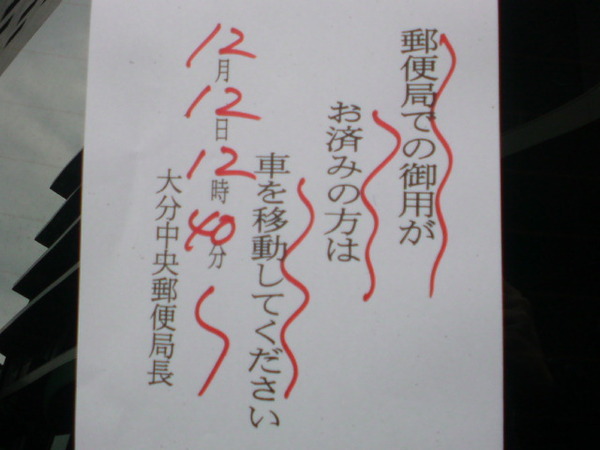 郵便局での御用が
お済みの方は
車を移動してください
12月12日12時40分
大分中央郵便局長